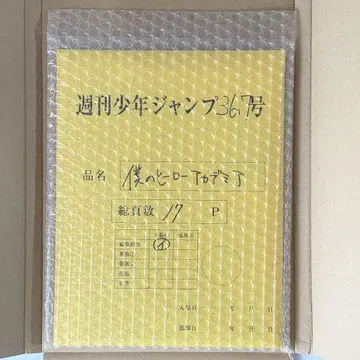 週刊少年ジャンプ36.7号
品名 僕のヒーローアカデミア
総頁数 17 P
入稿日 年 月 日
返却日 年 月 日